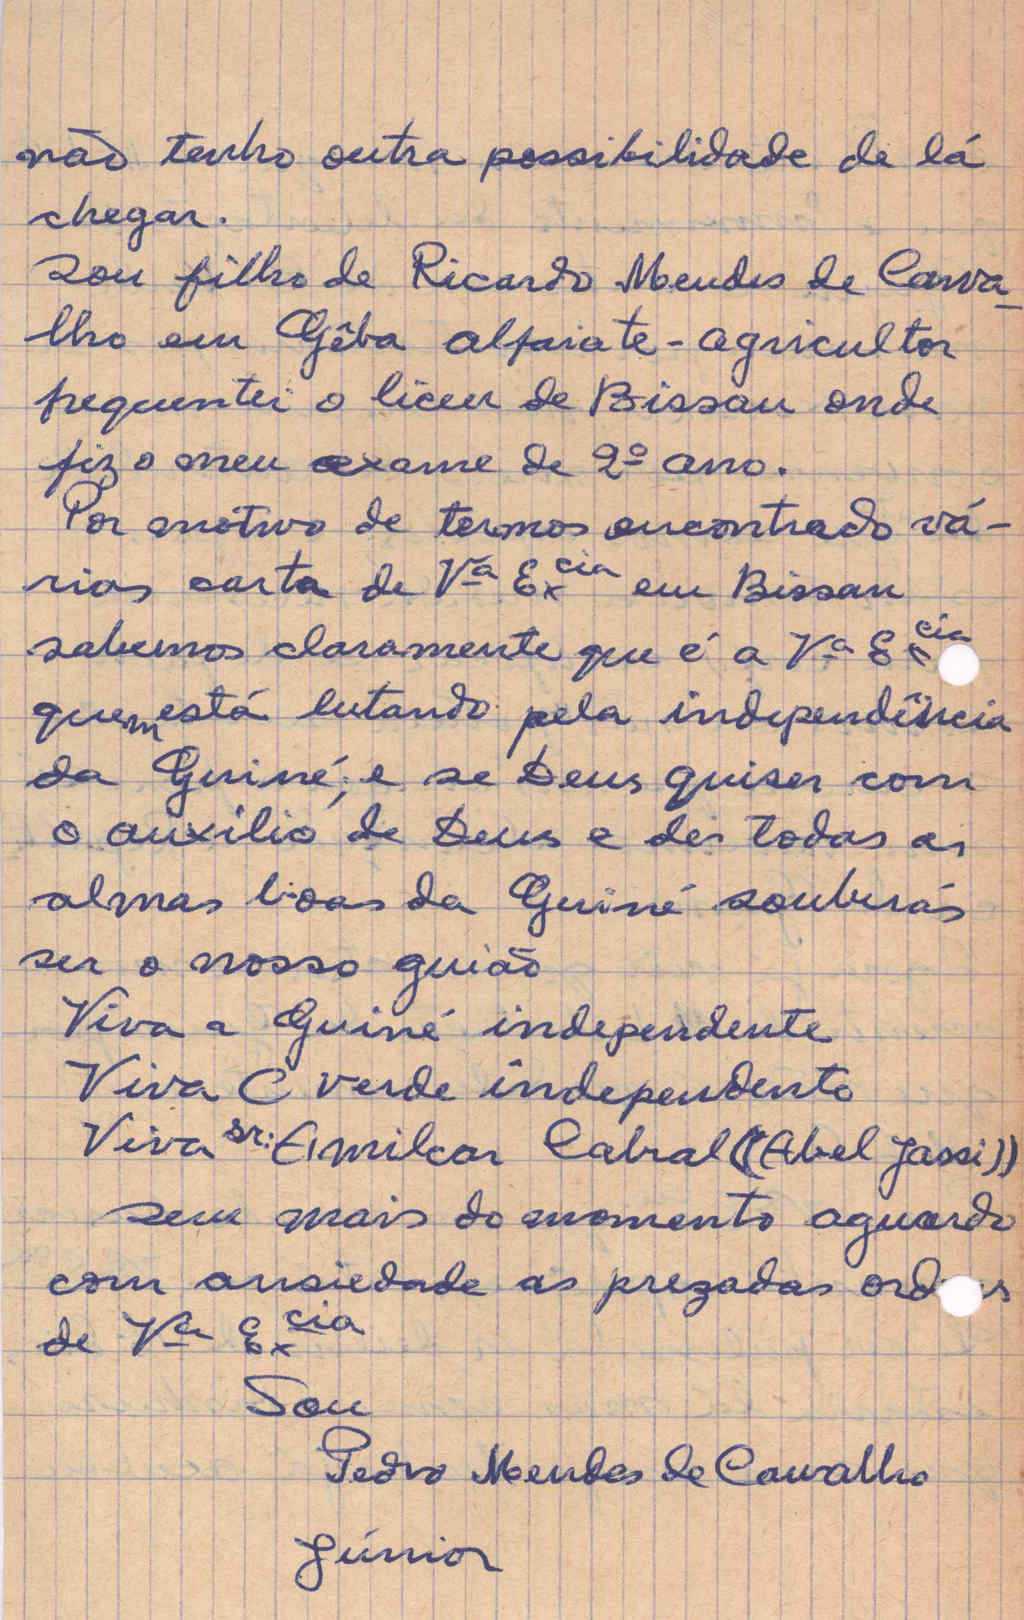 não tenho outra possibilidade de lá
chegar.
Sou filho de Ricardo Mendes de Carva_
lho em Gêba alfaiate-agricultor
frequentei o liceu de Bissau onde
fiz o meu exame de 2º ano.
Por motivo de termos encontrado vá-
rias carta de Vª Excia em Bissau
sabemos claramente que é a Vª Excia
quem está lutando pela independência
da Guiné, e se Deus quiser com
o auxílio de Deus e de todas as
almas boas da Guiné souberás
ser o nosso guião
Viva a Guiné independente
Viva C verde independente
Viva sr: Amilcar Cabral ((Abel Jassi))
sem mais do momento aguardo
com ansiedade as prezadas ord s
de Vª Excia
Sou
Pedro Mendes de Carvalho
Júnior